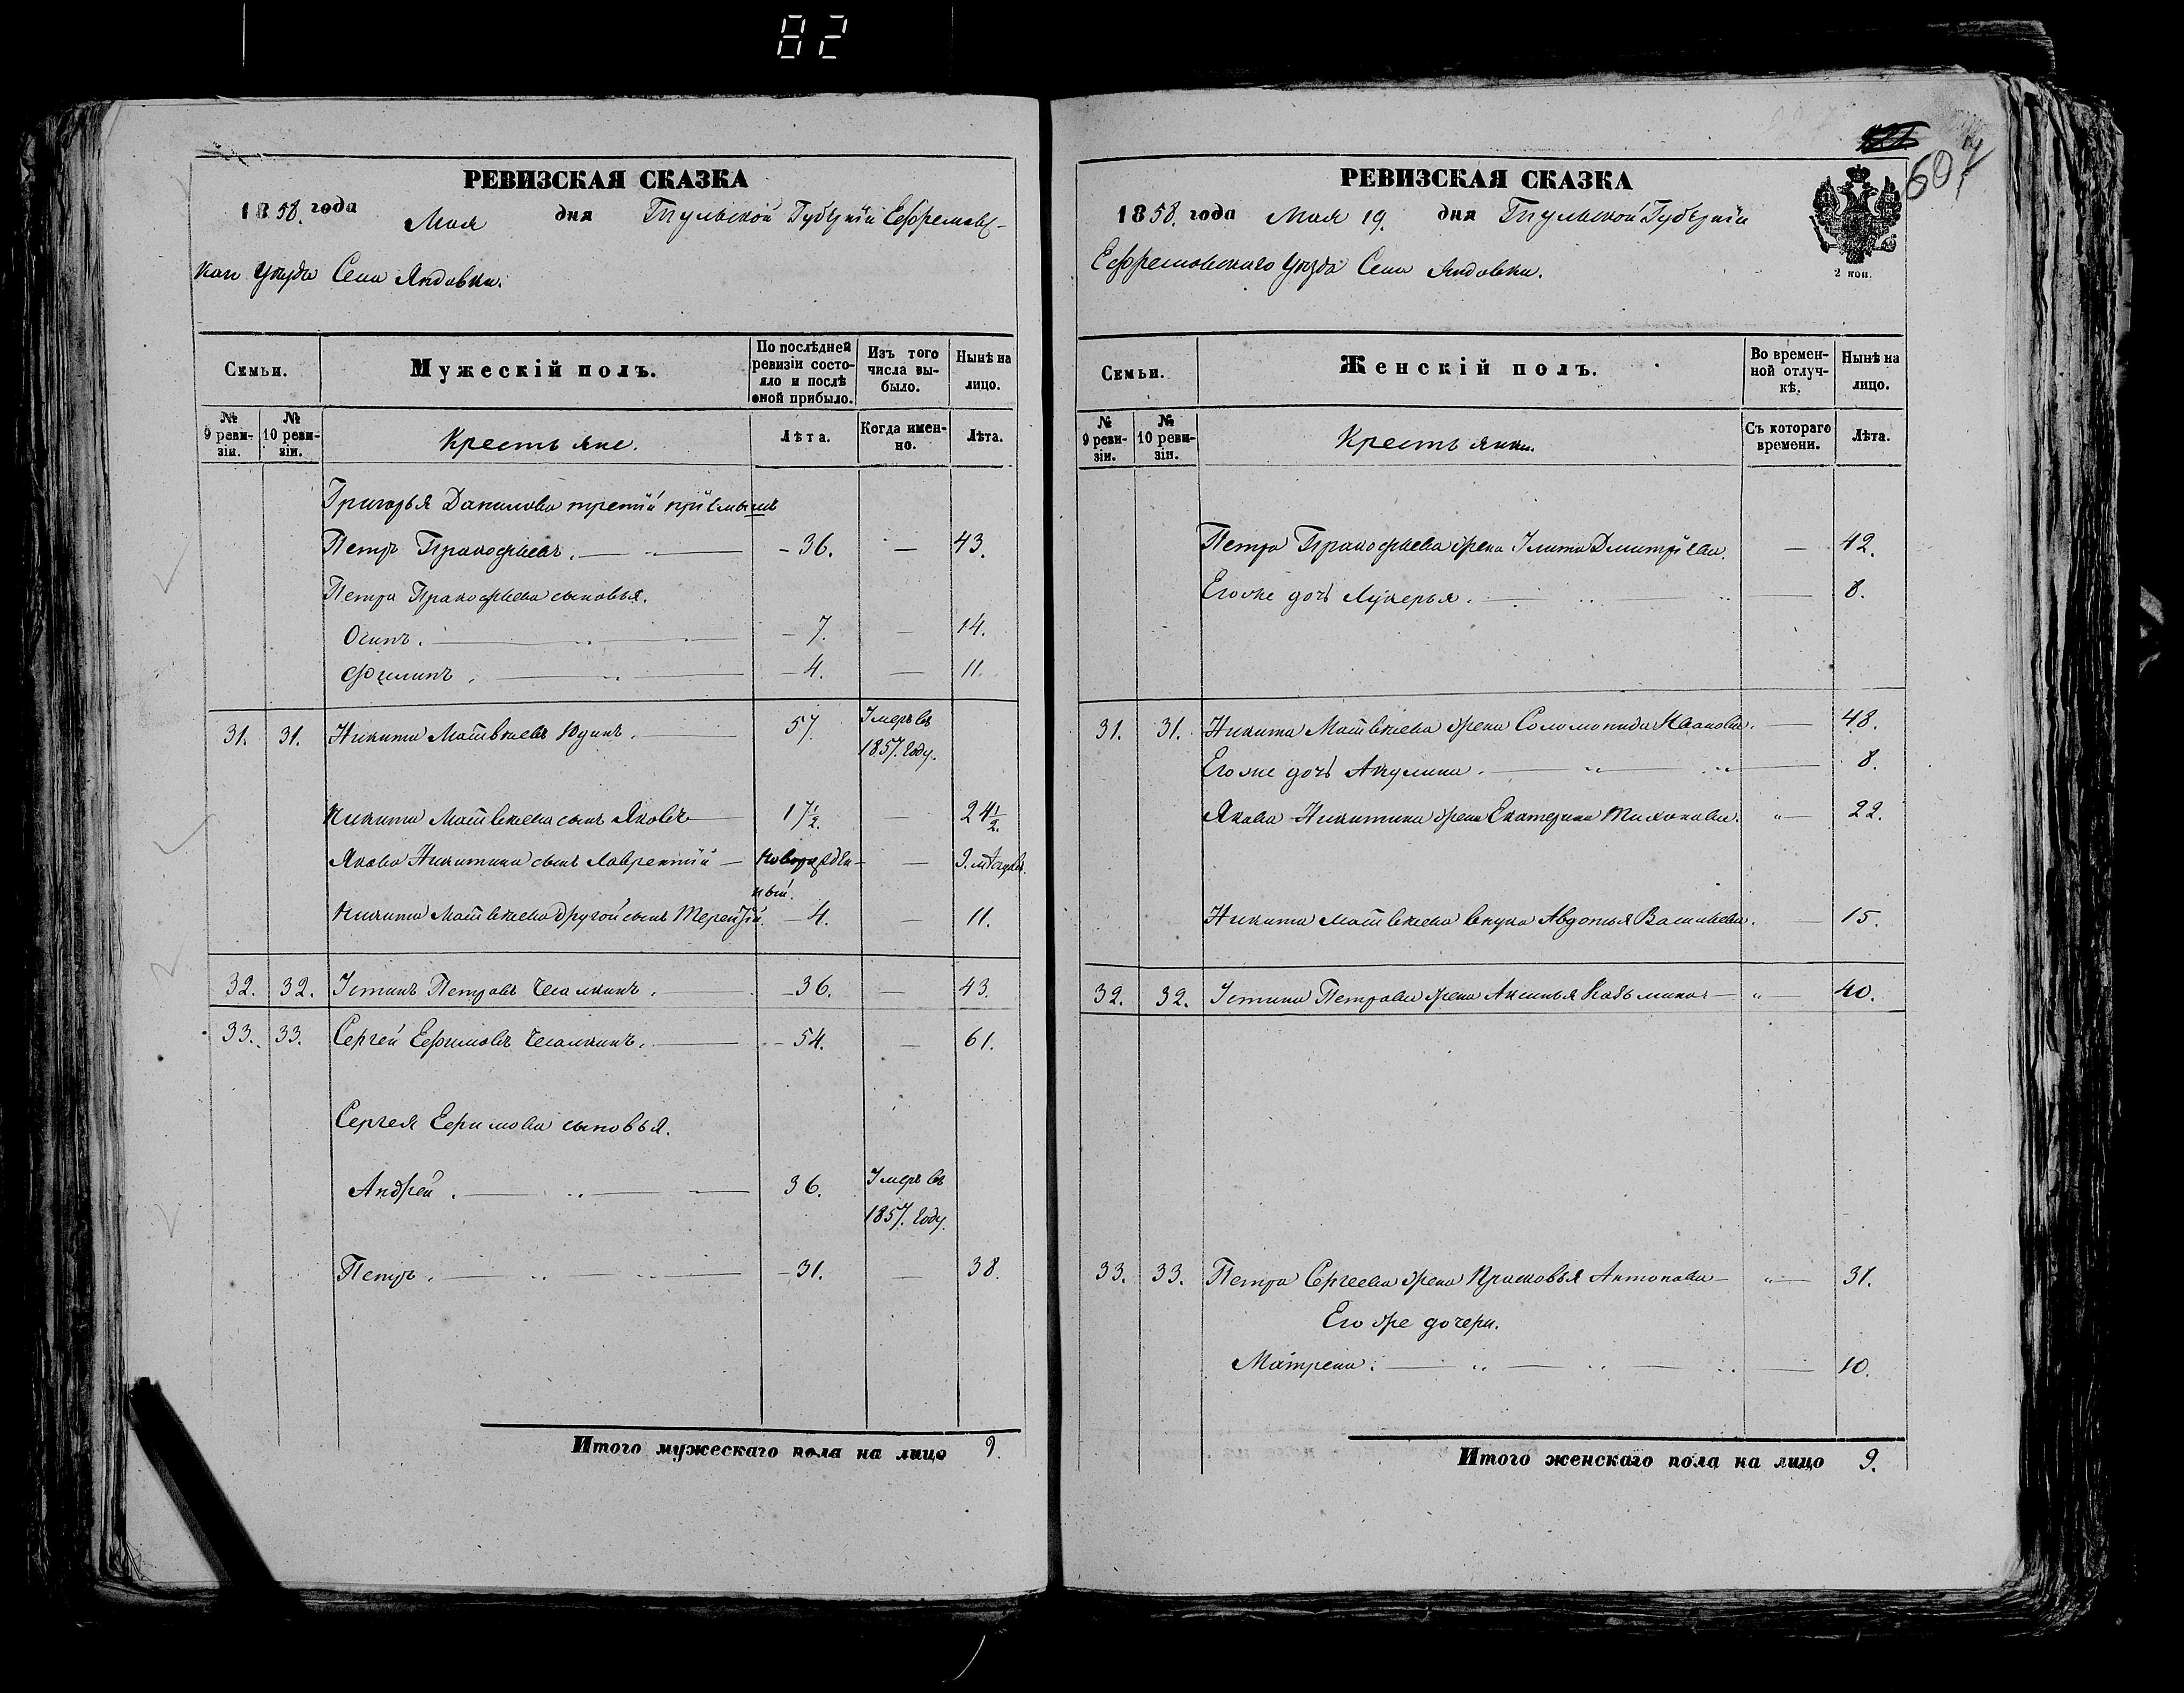 82
РЕВИЗСКАЯ СКАЗКА
1858. года Мая дня Тульской Губернiи Ефремовс-
каго уѣзда Села Яндовки.
Семьи.
Мужескiй полъ.
По послѣдней ревизiи состояло и послѣ оной прибыло.
Изъ того числа выбыло.
Нынѣ на лицо.
№ 9 ревизiи.
№ 10 ревизiи.
Крестьяне.
Лѣта.
Когда именно.
Лѣта.
Григорья Данилова третiй прiемышъ
Петръ Пракофьевъ. — 36. — 43.
Петра Пракофьева сыновья.
Осипъ. — 7. — 14.
Филипъ. — 4. — 11.
31. 31. Никита Матвѣевъ Юдинъ. — 57. Умеръ въ
1857. году.
Никиты Матвѣева сынъ Яковъ — 17½. — 24½.
Якова Никитина сынъ Лаврентiй — новорожден- — 9. мѣсяцовъ.
ный.
Никиты Матвѣева другой сынъ Терентiй. — 4. — 11.
32. 32. Устинъ Петровъ . — 36. — 43.
33. 33. Сергей Ефимовъ . — 54. — 61.
Сергея Ефимова сыновья.
Андрей. — 36. Умеръ въ
1857. году.
Петръ. — 31. — 38.
Итого мужескаго пола на лицо 9.
607
РЕВИЗСКАЯ СКАЗКА
1858. года Мая 19. дня Тульской Губернiи
Ефремовскаго уѣзда Села Яндовки.
2 коп.
Семьи.
Женскiй полъ.
Во временной отлучкѣ.
Нынѣ на лицо.
№ 9 ревизiи.
№ 10 ревизiи.
Крестьянки.
Съ котораго времени.
Лѣта.
Петра Пракофьева жена Улита Дмитрiева. — 42.
Его же дочь Лукерья. — 8.
31. 31. Никиты Матвѣева жена Соломонида Иванова. — 48.
Его же дочь Акулина. — 8.
Якова Никитина жена Екатерина Тихонова. — 22.
Никиты Матвѣева внука Авдотья Васильева. — 15.
32. 32. Устина Петрова жена Аксинья Козьмина — 40.
33. 33. Петра Сергеева жена Прасковья Антонова — 31.
Его же дочери.
Матрена. — 10.
Итого женскаго пола на лицо 9.